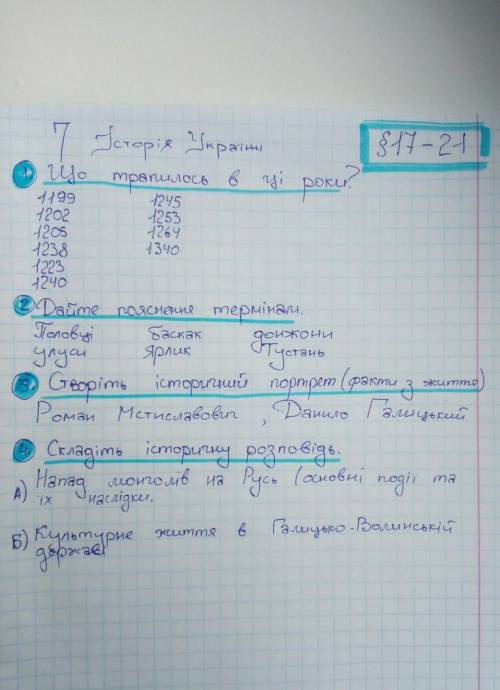 7 Історія Україні
§17-21
1. Що трапилось в ці роки?
1199 1245
1202 1253
1205 1264
1238 1340
1223
1240
2. Дайте пояснення термінам.
Половці баскак донжони
улуси ярлик Тустань
3. Створіть історичний портрет (факти з життя)
Роман Мстиславович, Данило Галицький
4. Складіть історичну розповідь.
А) Напад монголів на Русь (основні події та
їх наслідки.
Б) Культурне життя в Галицько-Волинській
державі